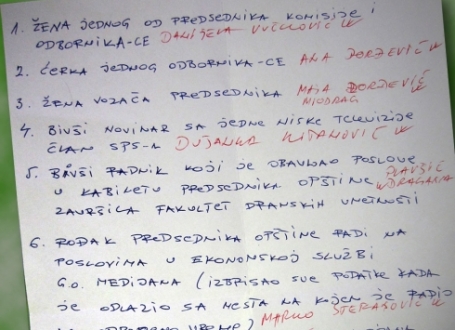 1. ŽENA JEDNOG OD PREDSEDNIKA KOMISIJE I
ODBORNIKA-CE DANIJELA VUČKOVIĆ
2. ĆERKA JEDNOG ODBORNIKA-CE ANA ĐORĐEVIĆ
3. ŽENA VOZAČA PREDSEDNIKA MAJA ĐORĐEVIĆ
MIODRAG
4. BIVŠI NOVINAR SA JEDNE NIŠKE TELEVIZIJE
ČLAN SPS-A DUŠANKA KITANOVIĆ
5. BIVŠI RADNIK KOJI JE OBAVLJAO POSLOVE
U KABINETU PREDSEDNIKA OPŠTINE PLAVŠIĆ
DRAGANA
ZAVRŠILA FAKULTET DRAMSKIH UMETNOSTI
6. ROĐAK PREDSEDNIKA OPŠTINE RADI NA
POSLOVIMA U EKONOMSKOJ SLUŽBI
G.O. MEDIJANA (IZBRISAO SVE PODATKE KADA
JE ODLAZIO SA MESTA NA KOJEM JE RADIO
VREME) MARKO STEFANOVIĆ